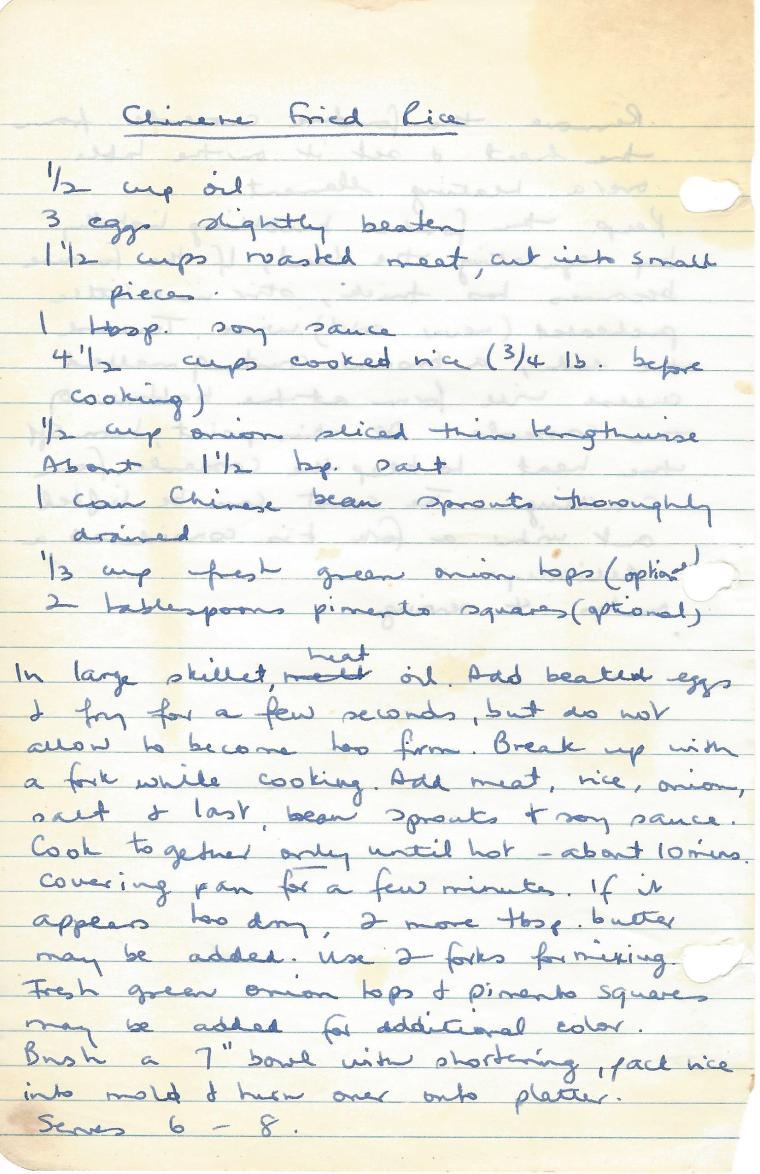 Chinese Fried Rice
1/2 cup oil
3 eggs slightly beaten
1 1/2 cups roasted meat, cut into small
pieces.
1 tbsp. soy sauce
4 1/2 cups cooked rice (3/4 lb. before
cooking)
1/2 cup onion sliced thin lengthwise
About 1 1/2 tsp. salt
1 can Chinese bean sprouts thoroughly
drained
1/3 cup fresh green onion tops (optional)
2 tablespoons pimento squares (optional)
In large skillet, melt heat oil. Add beated eggs
& fry for a few seconds, but do not
allow to become too firm. Break up with
a fork while cooking. Add meat, rice, onion,
salt & last, bean sprouts & soy sauce.
Cook together only until hot - about 10 mins.
covering pan for a few minutes. If it
appears too dry, 2 more tbsp. butter
may be added. Use 2 forks for mixing.
Fresh green onion tops & pimento squares
may be added for additional color.
Brush a 7" bowl with shortening, pack rice
into mold & turn over onto platter.
Serves 6 - 8.